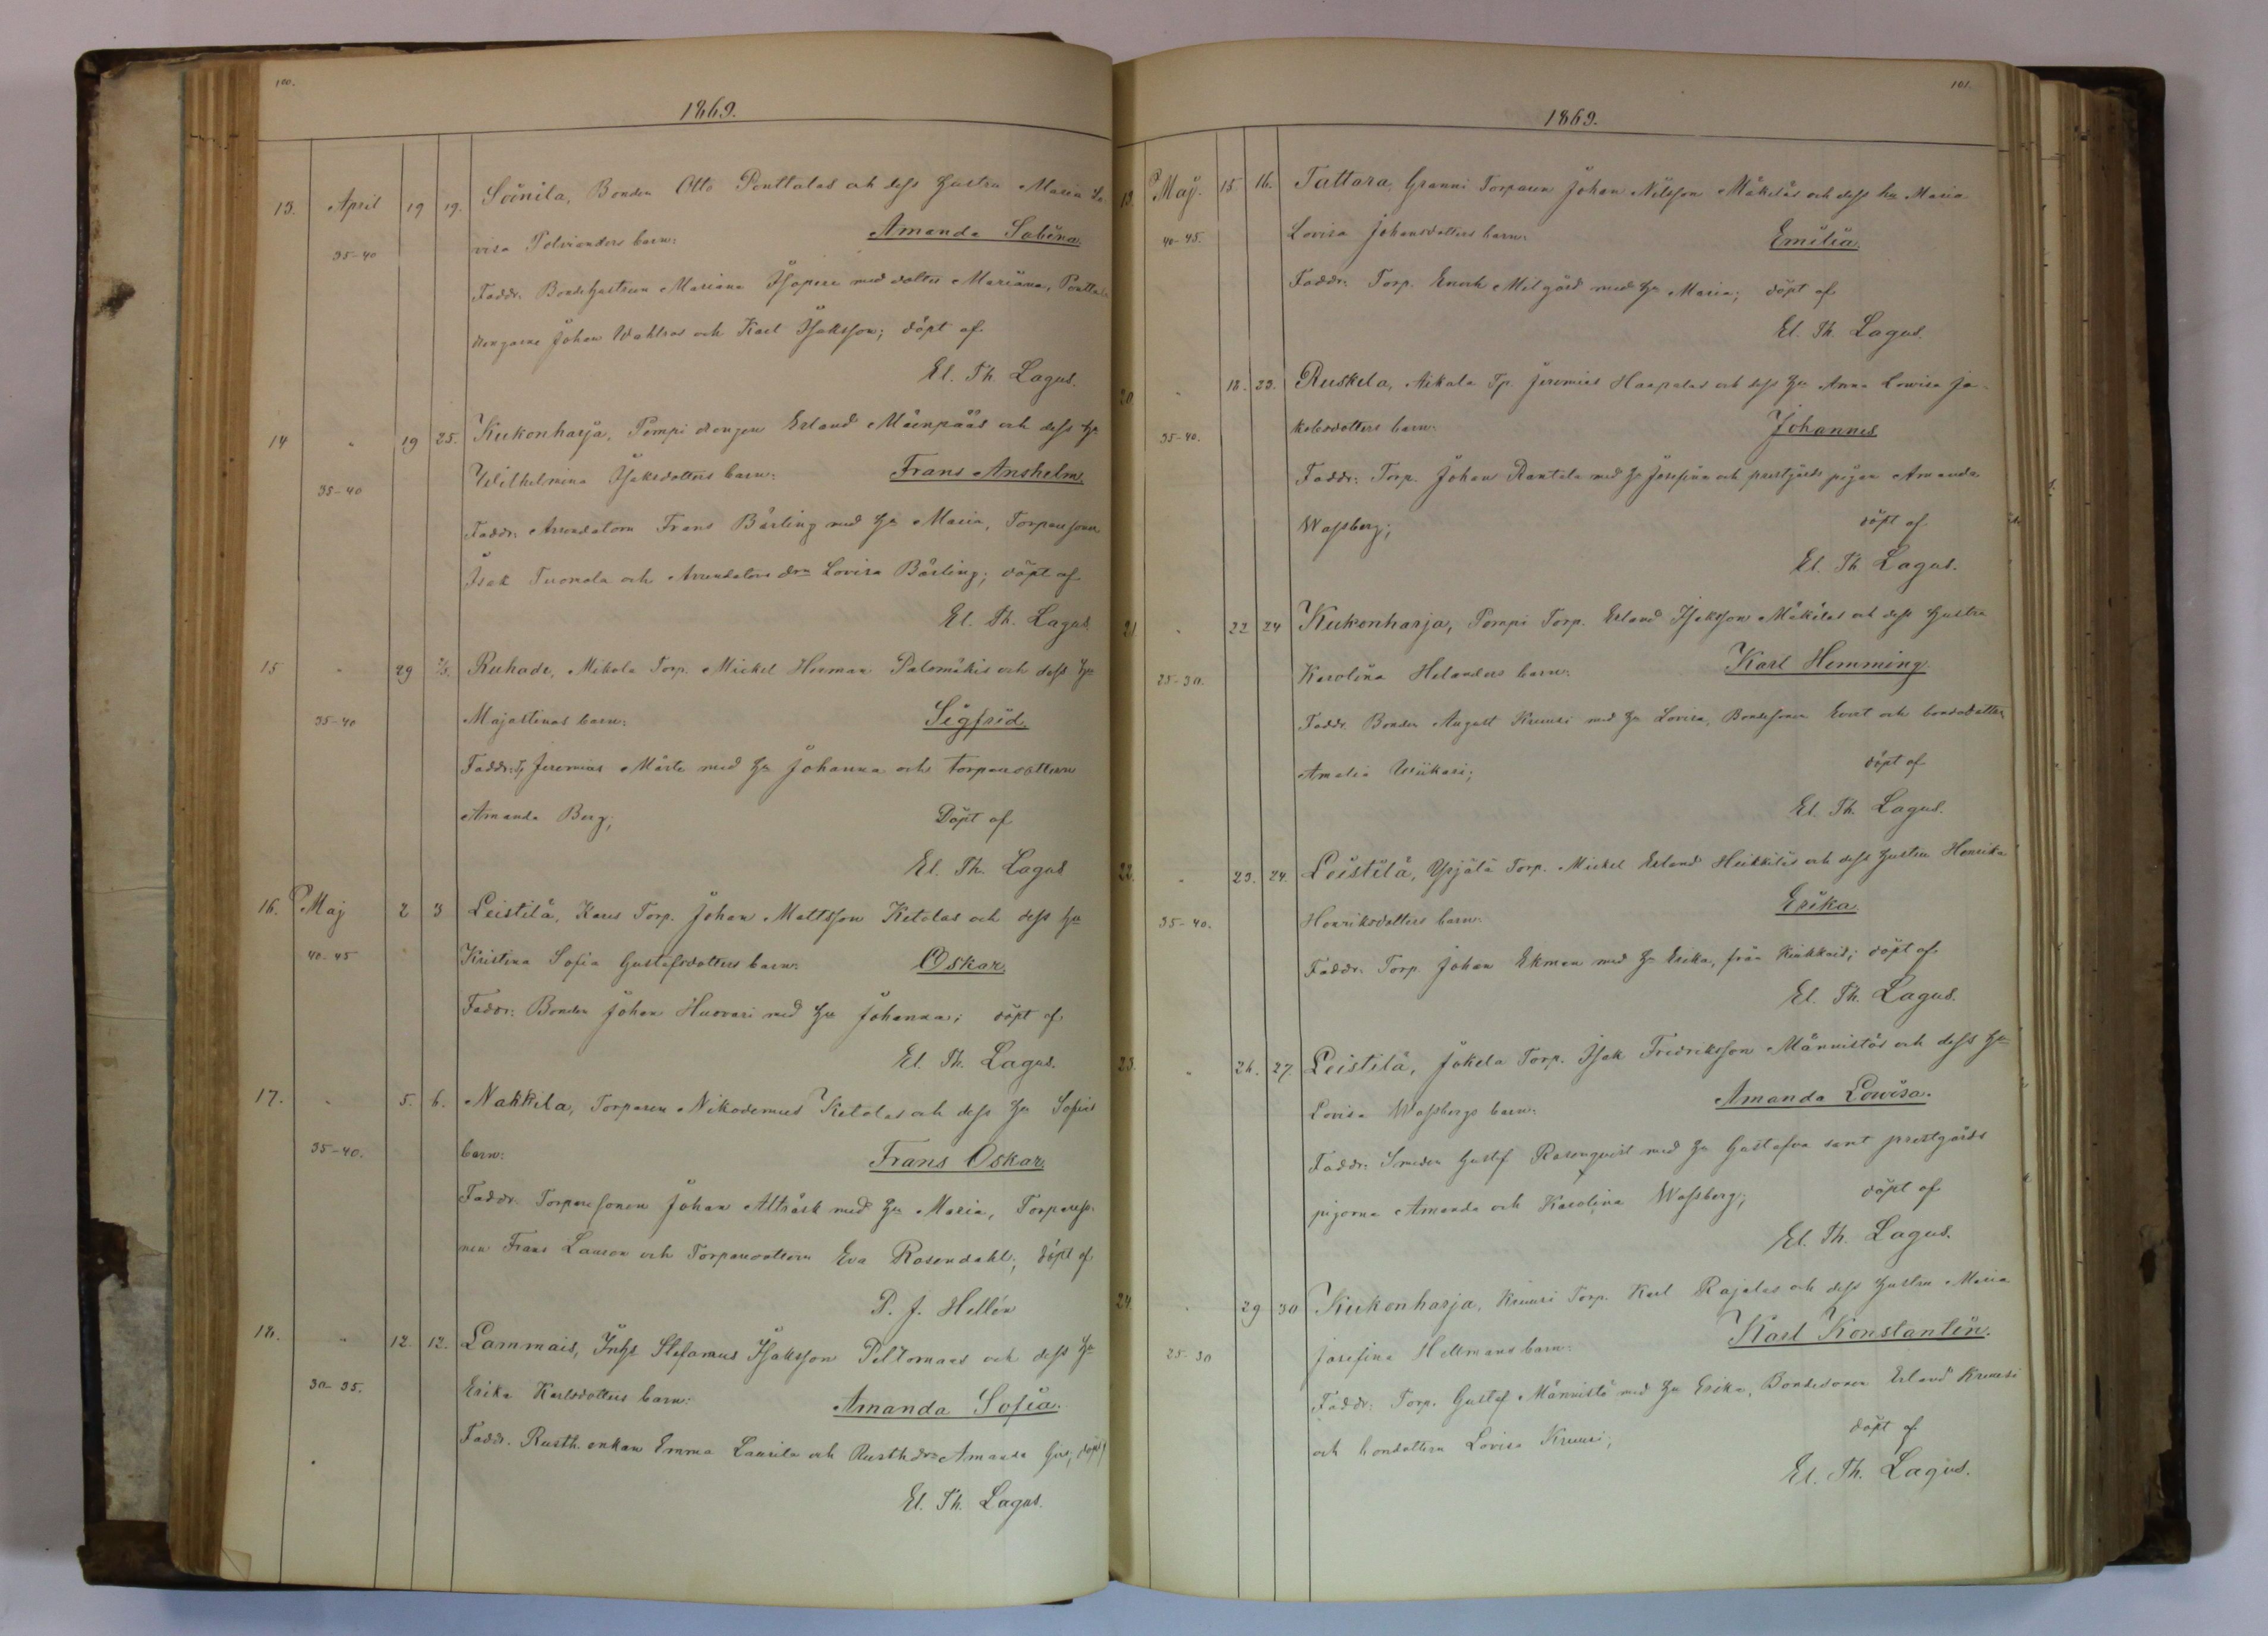 100.
1869.
13. April 19 19. Soinila, Bonden Otto Penttalas och dess hustru Maria Lo-
35-40 visa Polvianders barn: Amanda Sabina.
Faddr. Bondehustrun Mariana Isopere med dotter Mariana, Penttala
drengarne Johan Wahlros och Karl Isaksson; döpt af
El. Th. Lagus.
14 " 19 25. Kukonharja, Pompi drengen Erland Mäenpääs och dess hu
35-40 Wilhelmina Isaksdotters barn: Frans Anshelm.
Faddr: Arrendatorn Frans Bärling med hu Maria, Torparesonen
Isak Tuomola och Arrendators drn Lovisa Bärling; döpt af
El. Th. Lagus.
15 " 29 2/5. Ruhade, Mikola Torp. Mickel Herman Palomäkis och dess hu
35-40 Majastinas barn: Sigfrid.
Faddr: Tp Jeremias Märte med hu Johanna och torparedottern
Amanda Berg; Döpt af
El. Th. Lagus
16. Maj 2 3 Leistilä, Kares Torp. Johan Mattsson Ketolas och dess hu
40-45 Kristina Sofia Gustafsdotters barn: Oskar.
Faddr: Bonden Johan Husvari med hu Johanna; döpt af
El. Th. Lagus.
17. " 5. 6. Nakkila, Torparen Nikodemus Ketolas och dess hu Sofias
35-40. barn: Frans Oskar.
Faddr. Torparesonen Johan Alträsk med hu Maria, Torpareso-
nen Frans Lauron och Torparedottern Eva Rosendahl; döpt af
P. J. Hellén
18. " 12. 12. Lammais, Inhs Stefanus Isaksson Peltomaas och dess hu
30-35. Erika Karlsdotters barn: Amanda Sofia.
Faddr. Rusth. enkan Emma Laurila och Rusth drn Amanda döpt
El. Th. Lagus.
101.
1869.
19. Maj. 15 16. Tattara, Granni Torparen Johan Nilsson Mäkeläs och dess hu Maria
40-45. Lovisa Johansdotters barn: Emilia.
Faddr: Torp. Enok Melgård med hu Maria; döpt af
El. Th. Lagus.
20 " 18. 23. Ruskila, Mikala Tp. Jeremias Haapalas och dess hu Anna Lowisa Ja-
35-40. kobsdotters barn: Johannes
Faddr: Torp. Johan Rantala med hu Josefina och prestgårds pigan Amanda
Wassberg; döpt af
El. Th. Lagus.
21 " 22 24 Kukonharja, Pompi Torp. Erland Isaksson Mäkeläs och dess hustru
25-30. Karolina Helanders barn: Karl Hemming.
Faddr. Bonden August Kruusi med hu Lovisa, Bondesonen Evert och bondedotter
Amalia Wiikari; döpt af
El. Th. Lagus.
22. " 23. 24. Leistilä, Yrjälä Torp. Mickel Erland Heikkiläs och dess hustru Henrika
35-40. Henriksdotters barn: Erika.
Faddr: Torp. Johan Ekman med hu Erika, från Kiukkais; döpt af
El. Th. Lagus.
23. " 26. 27. Leistilä, Jokela Torp. Isak Fredriksson Männistös och dess hu
Lovisa Wassbergs barn: Amanda Lowisa.
Faddr: Smeden Gustf Rosenqvist med hu Gustafva samt prestgårds
pigorna Amanda och Karolina Wassberg; döpt af
El. Th. Lagus.
24. " 29 30 Kukonharja, Kruusi Torp. Karl Rajalas och dess hustru Maria
25-30 Josefina Hellmans barn: Karl Konstantin.
Faddr: Torp. Gustaf Männistö med hu Erika, Bondesonen Erland Kruusi
och bondottern Lovisa Kruusi; döpt af
El. Th. Lagus.